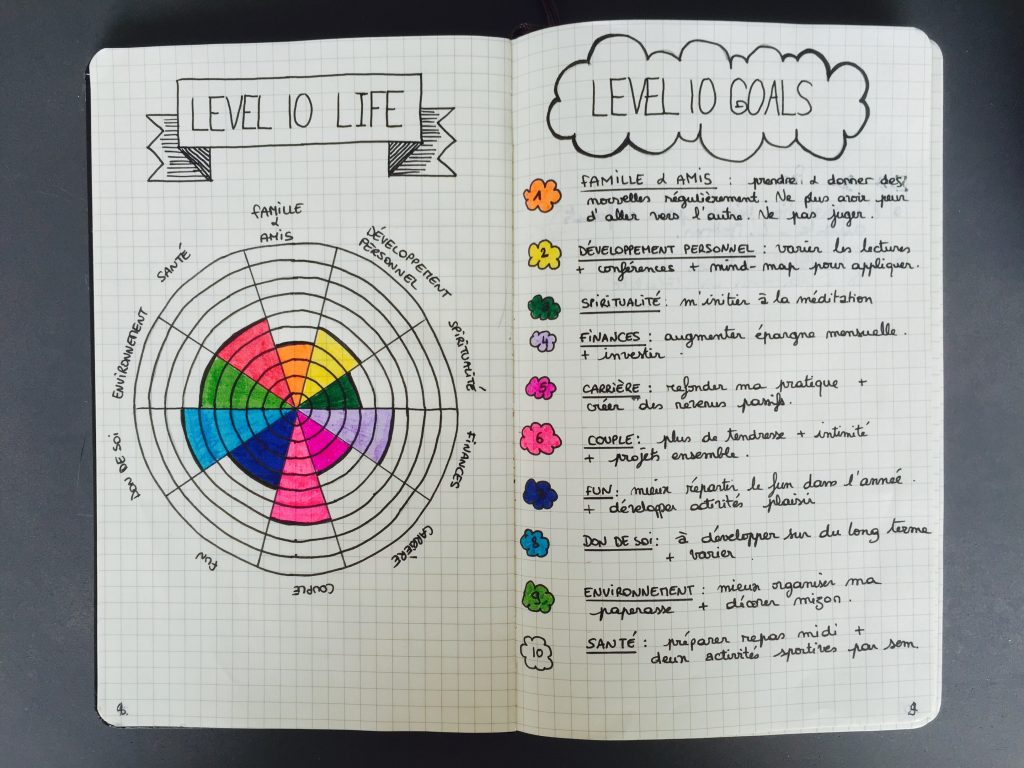 LEVEL 10 LIFE
FAMILLE
&
AMIS
DÉVELOPPEMENT
PERSONNEL
SPIRITUALITÉ
FINANCES
CARRIÈRE
COUPLE
FUN
DON DE SOI
ENVIRONNEMENT
SANTÉ
8.
LEVEL 10 GOALS
1 FAMILLE & AMIS : prendre & donner des
nouvelles régulièrement. Ne plus avoir peur
d'aller vers l'autre. Ne pas juger.
2 DÉVELOPPEMENT PERSONNEL : varier les lectures
+ conférences + mind-map pour appliquer.
3 SPIRITUALITÉ : m'initier à la méditation
4 FINANCES : augmenter épargne mensuelle.
+ investir.
5 CARRIÈRE : refonder ma pratique +
créer des revenus passifs.
6 COUPLE : plus de tendresse + intimité
+ projets ensemble.
7 FUN : mieux répartir le fun dans l'année.
+ développer activités plaisir
8 DON DE SOI : à développer sur du long terme
+ varier
9 ENVIRONNEMENT : mieux organiser ma
paperasse + décorer mizon.
10 SANTÉ : préparer repas midi +
deux activités sportives par sem.
9.